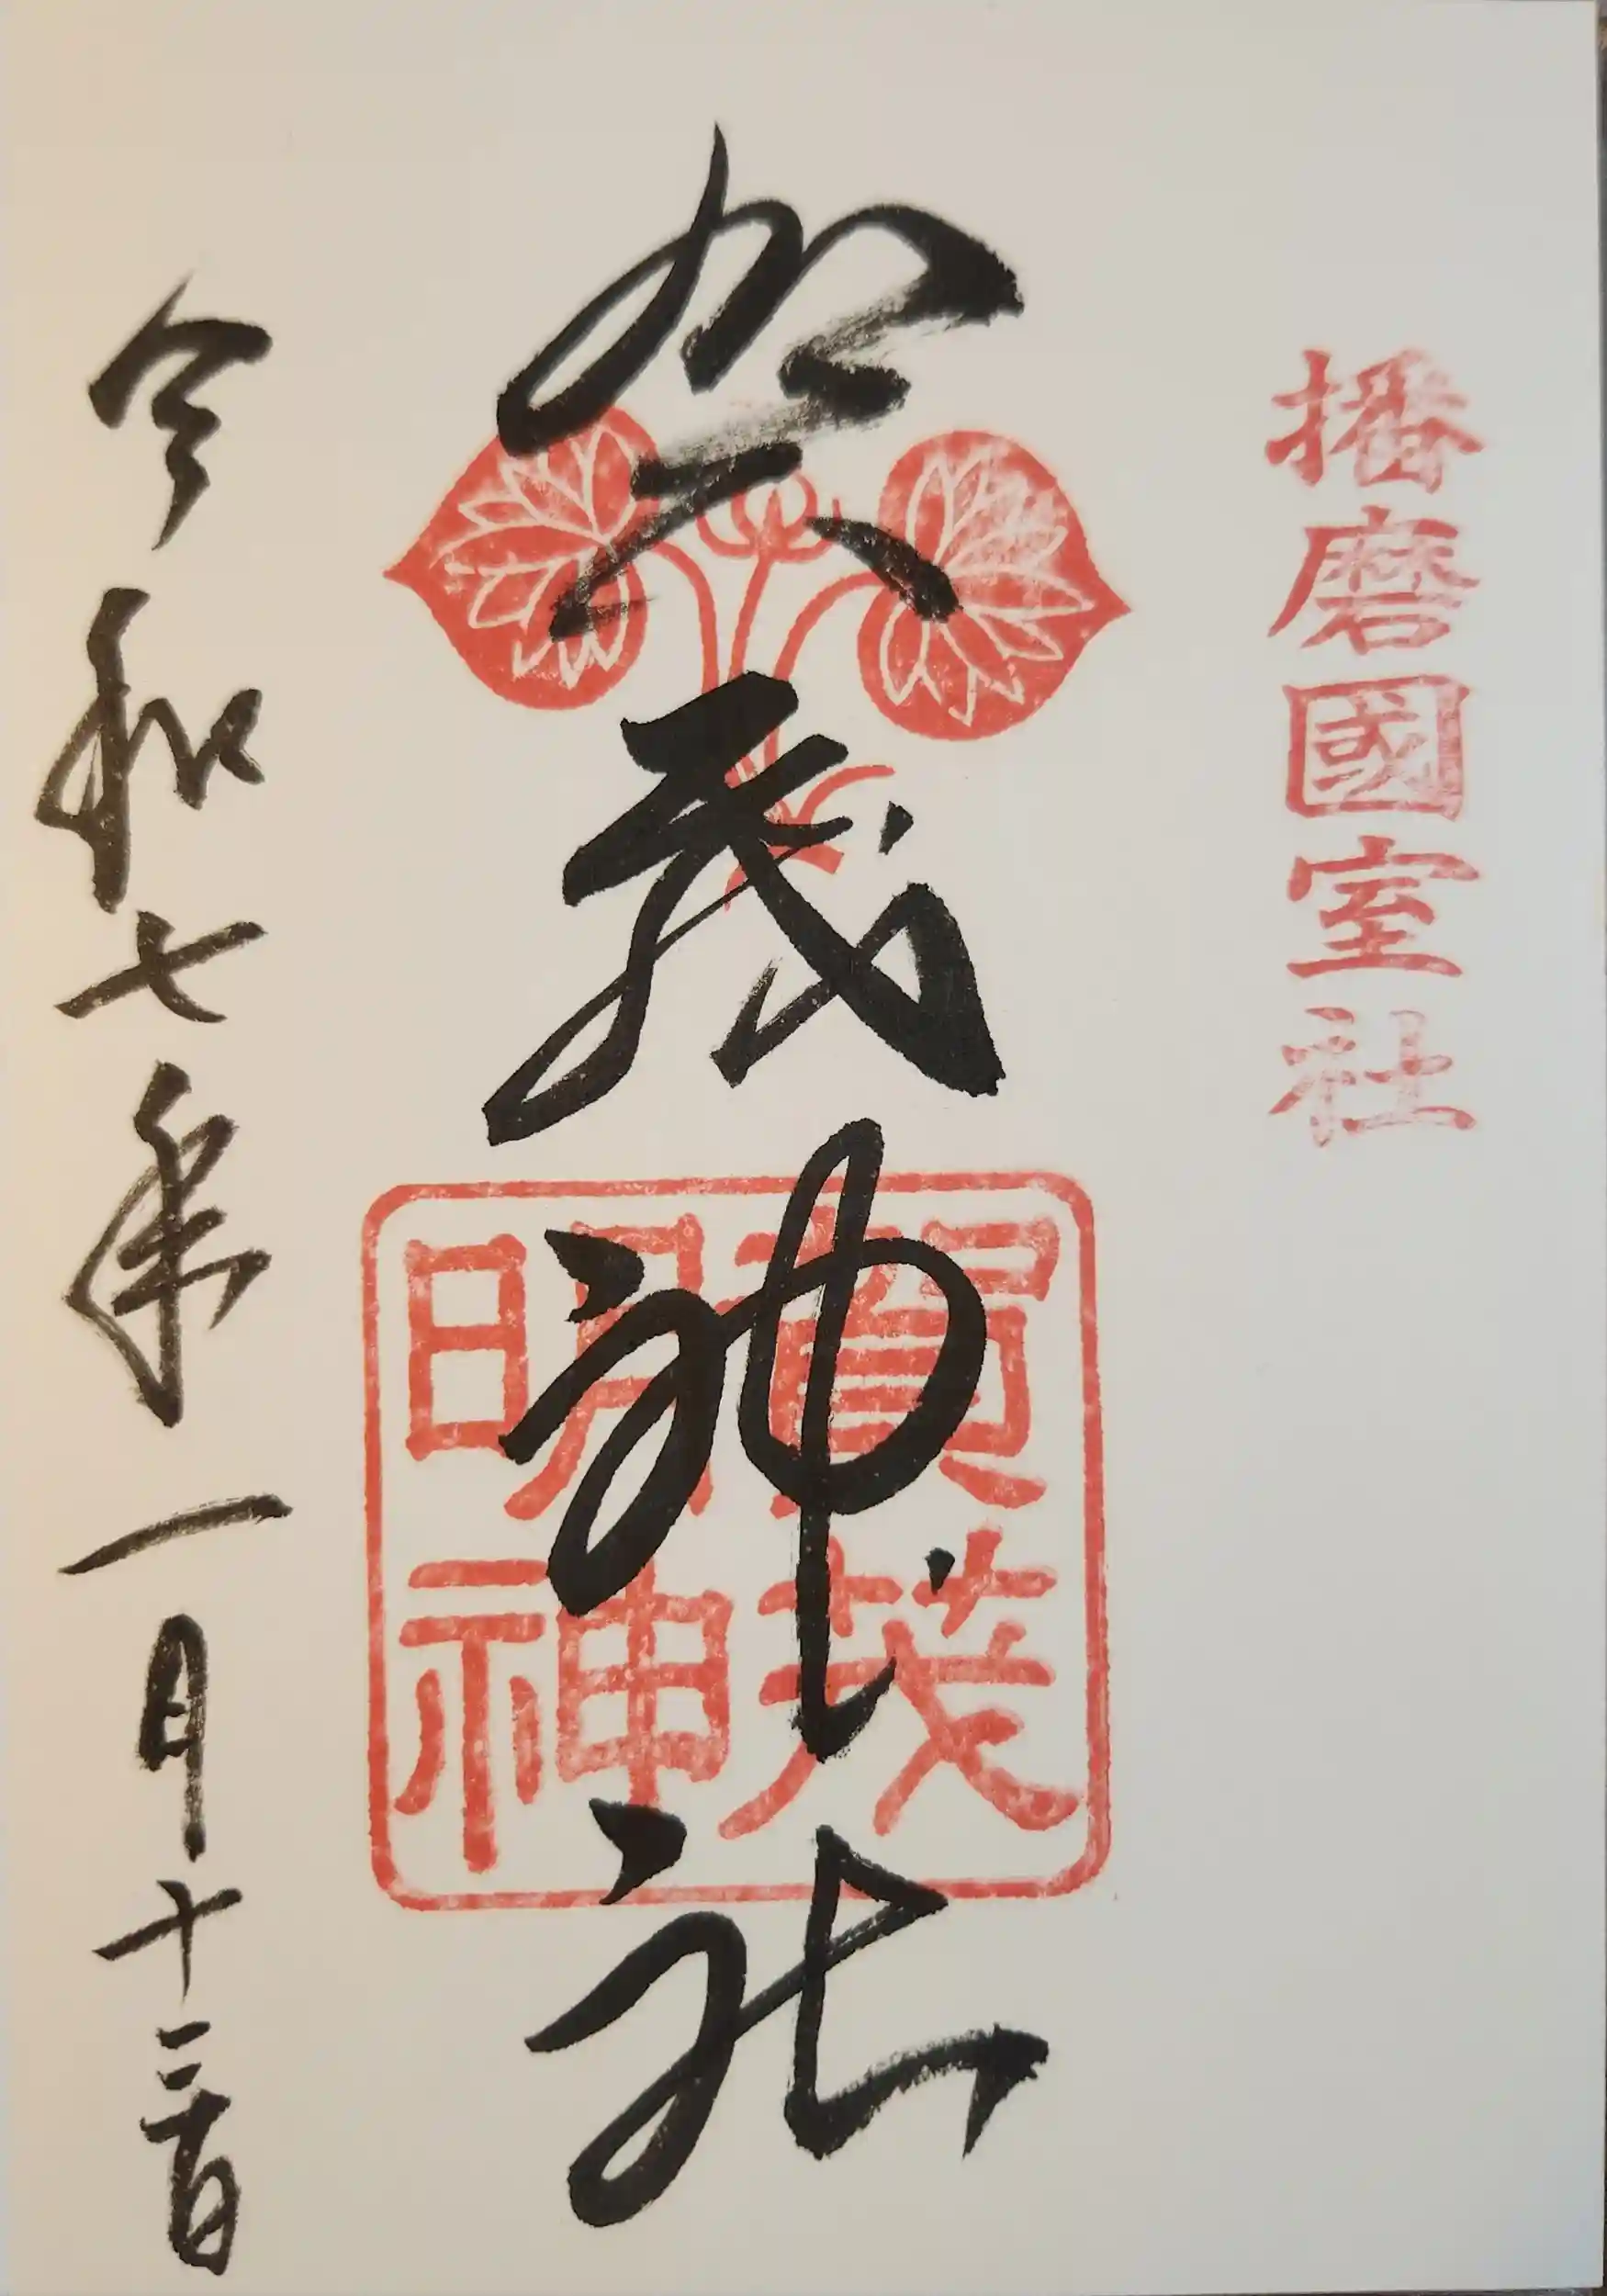 播磨國室社
賀茂神社
賀茂
明神
令和七年一月十三日